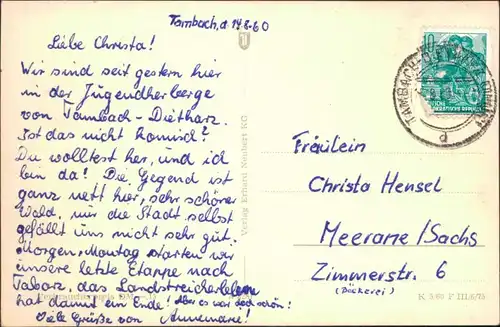 Tambach, d 14.8.60
Liebe Christa!
Wir sind seit gestern hier
in der Jugendherberge
von Tambach-Dietharz.
Ist das nicht komisch?
Du wolltest her, und ich
bin da! Die Gegend ist
ganz nett hier, sehr schöner
Wald, nur die Stadt selbst
gefällt uns nicht sehr gut.
Morgen, Montag starten wir
unsere letzte Etappe nach
Tabarz, das Landstreicherleben
hat dann ein Ende! Aber es war doch schön!
Viele Grüße von Annemarie!
Verlag Erhard Neubert KG
Fräulein
Christa Hensel
Meerane/Sachs
Zimmerstr. 6
(Bäckerei)
TAMBACH-DIETHARZ
d
10